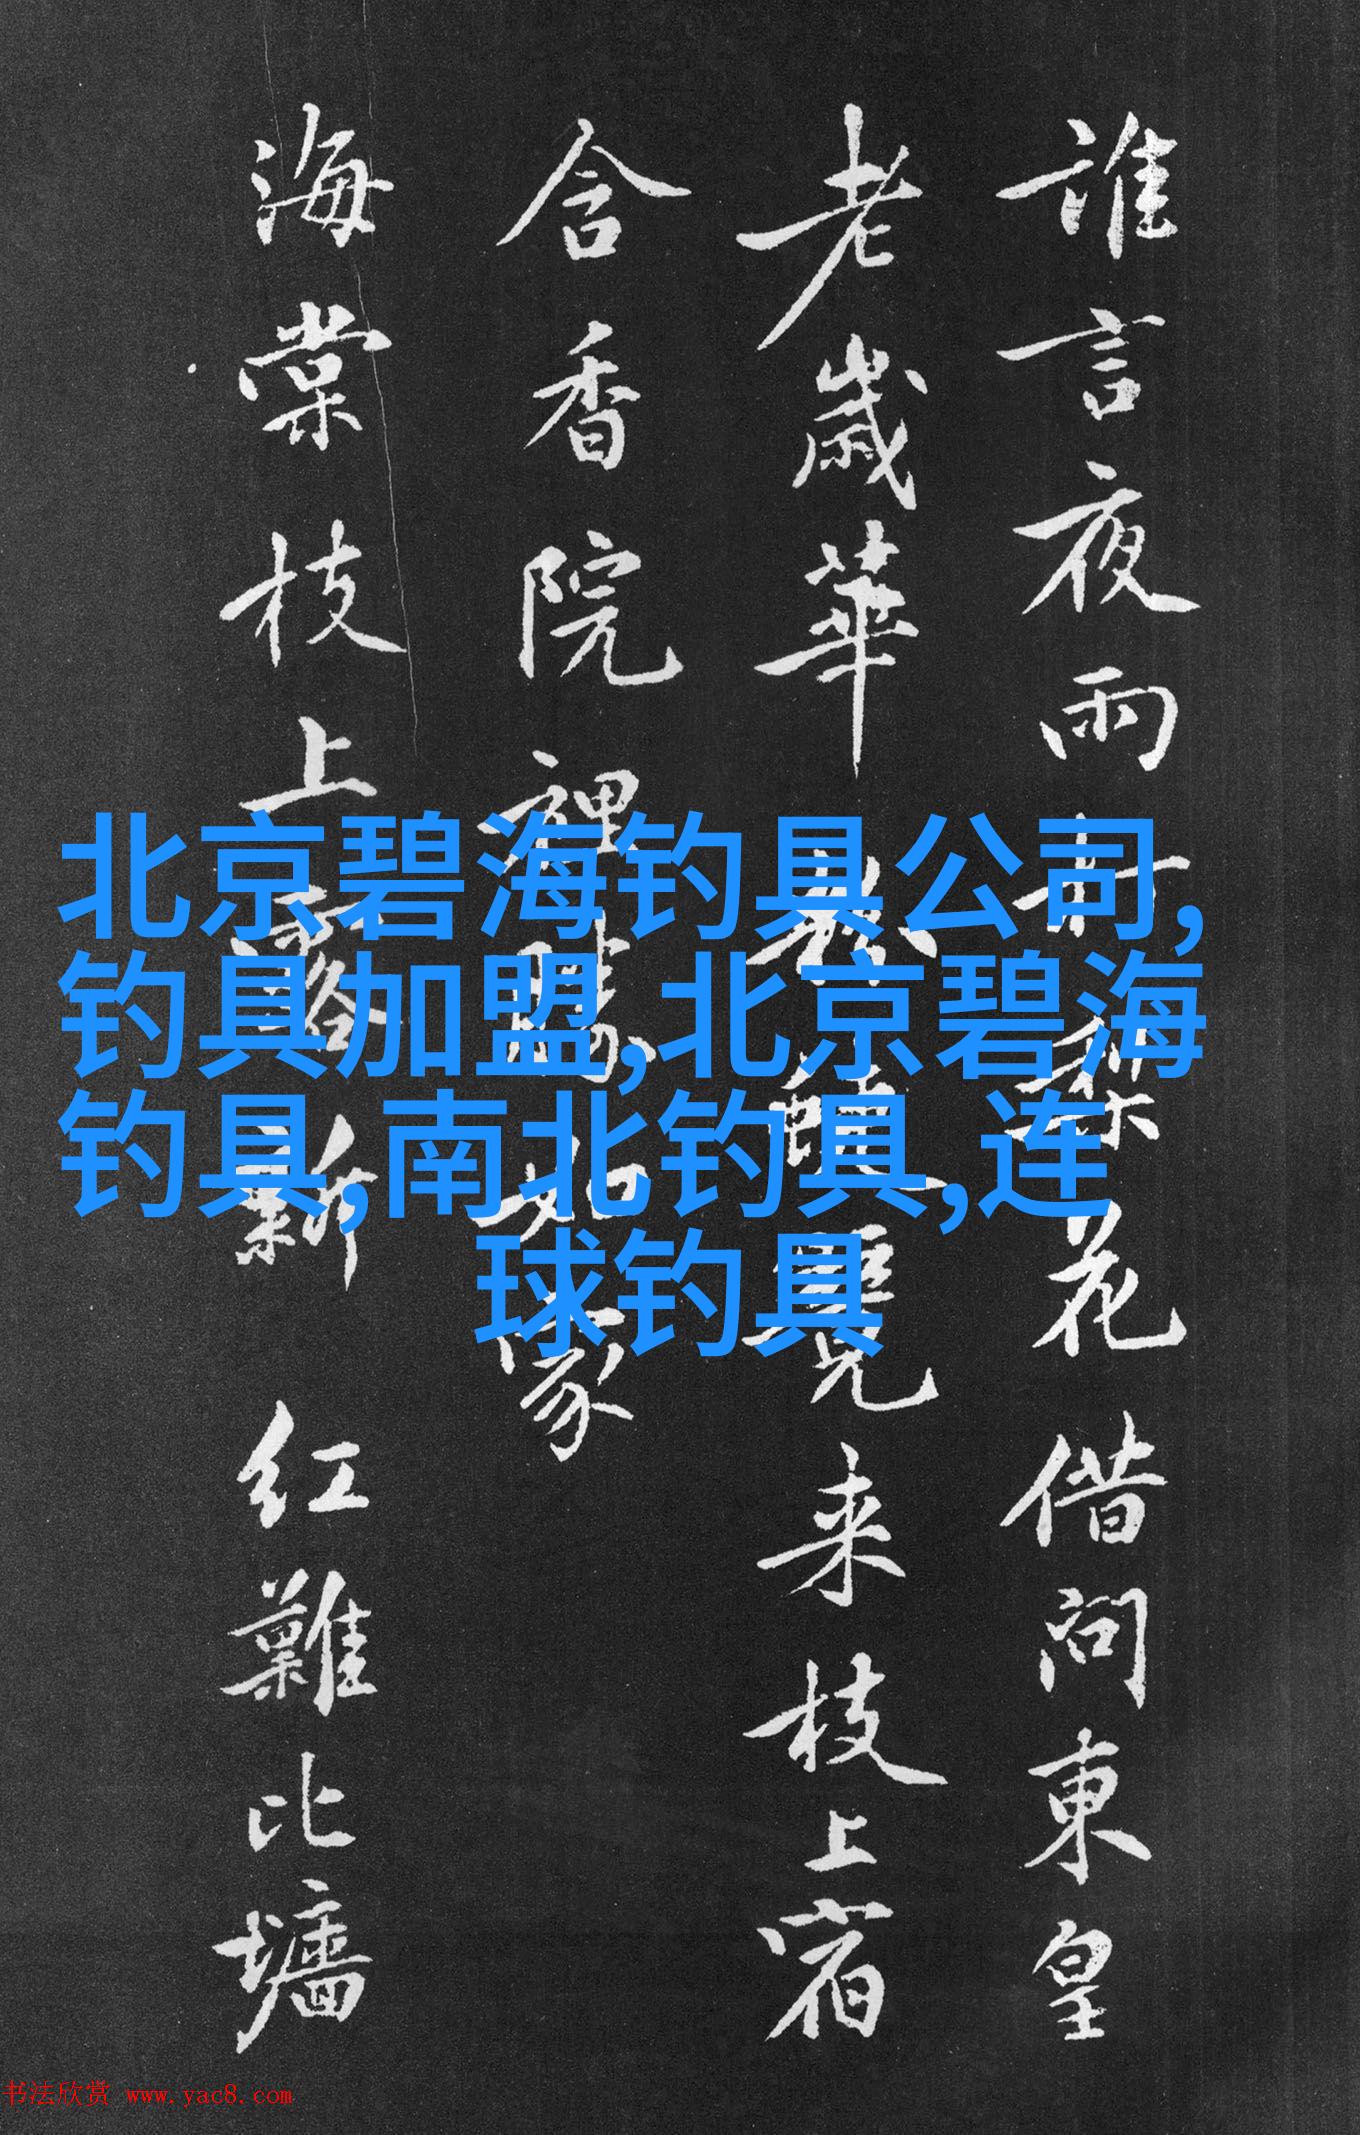 誰言夜雨打梨花借問東皇
老歲華來枝上宿
含香院裡
海棠枝上新红難比墙
北京碧海钓具公司,
钓具加盟,北京碧海
钓具,南北钓具,连
球钓具
书法欣赏 www.yac8.com